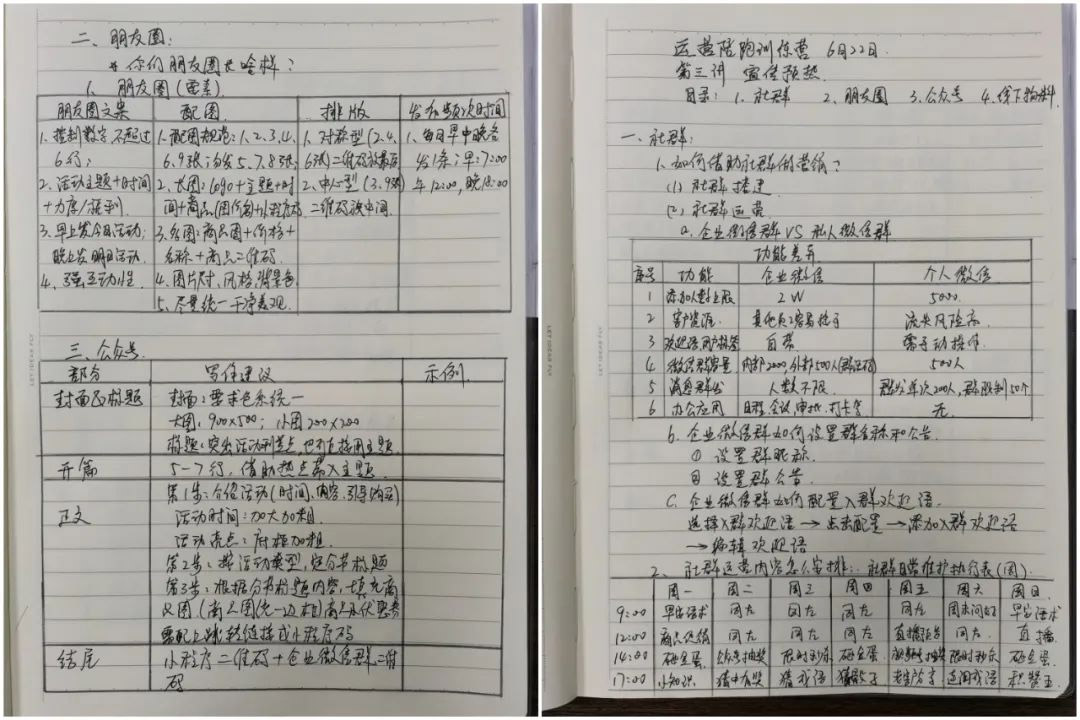 二、朋友圈：
* 你们朋友圈长啥样？
1. 朋友圈（要素）
朋友圈文案 配图 排版 发布频次时间
1、控制数字，不超过 1、配图规范：1、2、3、4、 1、对称型（2、4、 1、每日早中晚各
6行； 6、9张；勿发5、7、8张； 6张）二维码放最后 发1条；早：7:00
2、活动主题+时间 2、长图：logo+主题+时 2、中心型（3、9张） 午12:00，晚18:00
+力度/福利 间+商品（图价的）+小程序码 二维码放中间
3、早上发今日活动； 3、多图：商品图+价格+
晚上发明日活动 名称+商品二维码
4、强互动性 4、图片尺寸、风格、背景色
5、尽量统一干净美观
三、公众号
部分 写作建议 示例
封面及标题 封面：要求色系统一
大图：900×500；小图200×200
标题：突出活动利益点，也可直接用主题
开篇 5-7行，借助热点带入主题
第1步：介绍活动（时间、内容、引导购买）
正文 活动时间：加大加粗
活动亮点：标粗加粗
第2步：按活动类型，定分节标题
第3步：根据分节标题内容，填充商
及图（商品图统一边框）商品及优惠券
需配上跳转链接或小程序码
结尾 小程序二维码+企业微信群二维
码
运营陪跑训练营 6月22日
第三讲 宣传预热
目录： 1、社群 2、朋友圈 3、公众号 4、线下物料
一、社群：
1、如何借助社群做营销？
(1) 社群搭建
(2) 社群运营
a、企业微信群VS私人微信群
功能差异
序号 功能 企业微信 个人微信
1 添加人数上限 2W 5000
2 客户资源 其他员工容易接手 流失风险高
3 欢迎语用户标签 自带 需手动操作
4 微信群容量 内部2000，外部500人 500人
5 消息群发 人数不限 群发单次200人，群限制50个
6 办公应用 日程、会议、审批、打卡等 无
b、企业微信群如何设置群名称和公告
① 设置群昵称
② 设置群公告
C、企业微信群如何配置入群欢迎语
选择入群欢迎语→点击配置→添加入群欢迎语
→编辑欢迎语
2、社群运营内容怎么安排：社群日常维护执行表（周）
周一 周二 周三 周四 周五 周六 周日
9:00 早安话术 同左 同左 同左 同左 周末问好 早安话术
12:00 商品促销 同左 同左 同左 直播预告 同左 直播
14:00 砸金蛋 公众号抽奖 限时秒杀 砸金蛋 抽奖 限时秒杀 砸金蛋
17:00 小知识 猜中有奖 猜成语 猜 成语